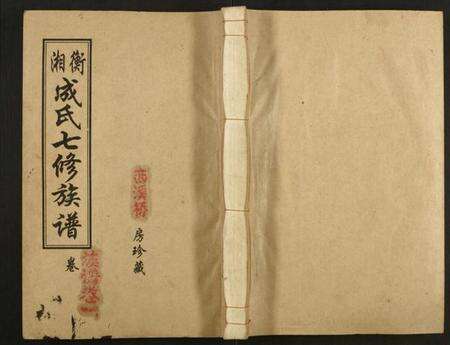 衡湘
成氏七修族谱
卷
房珍藏